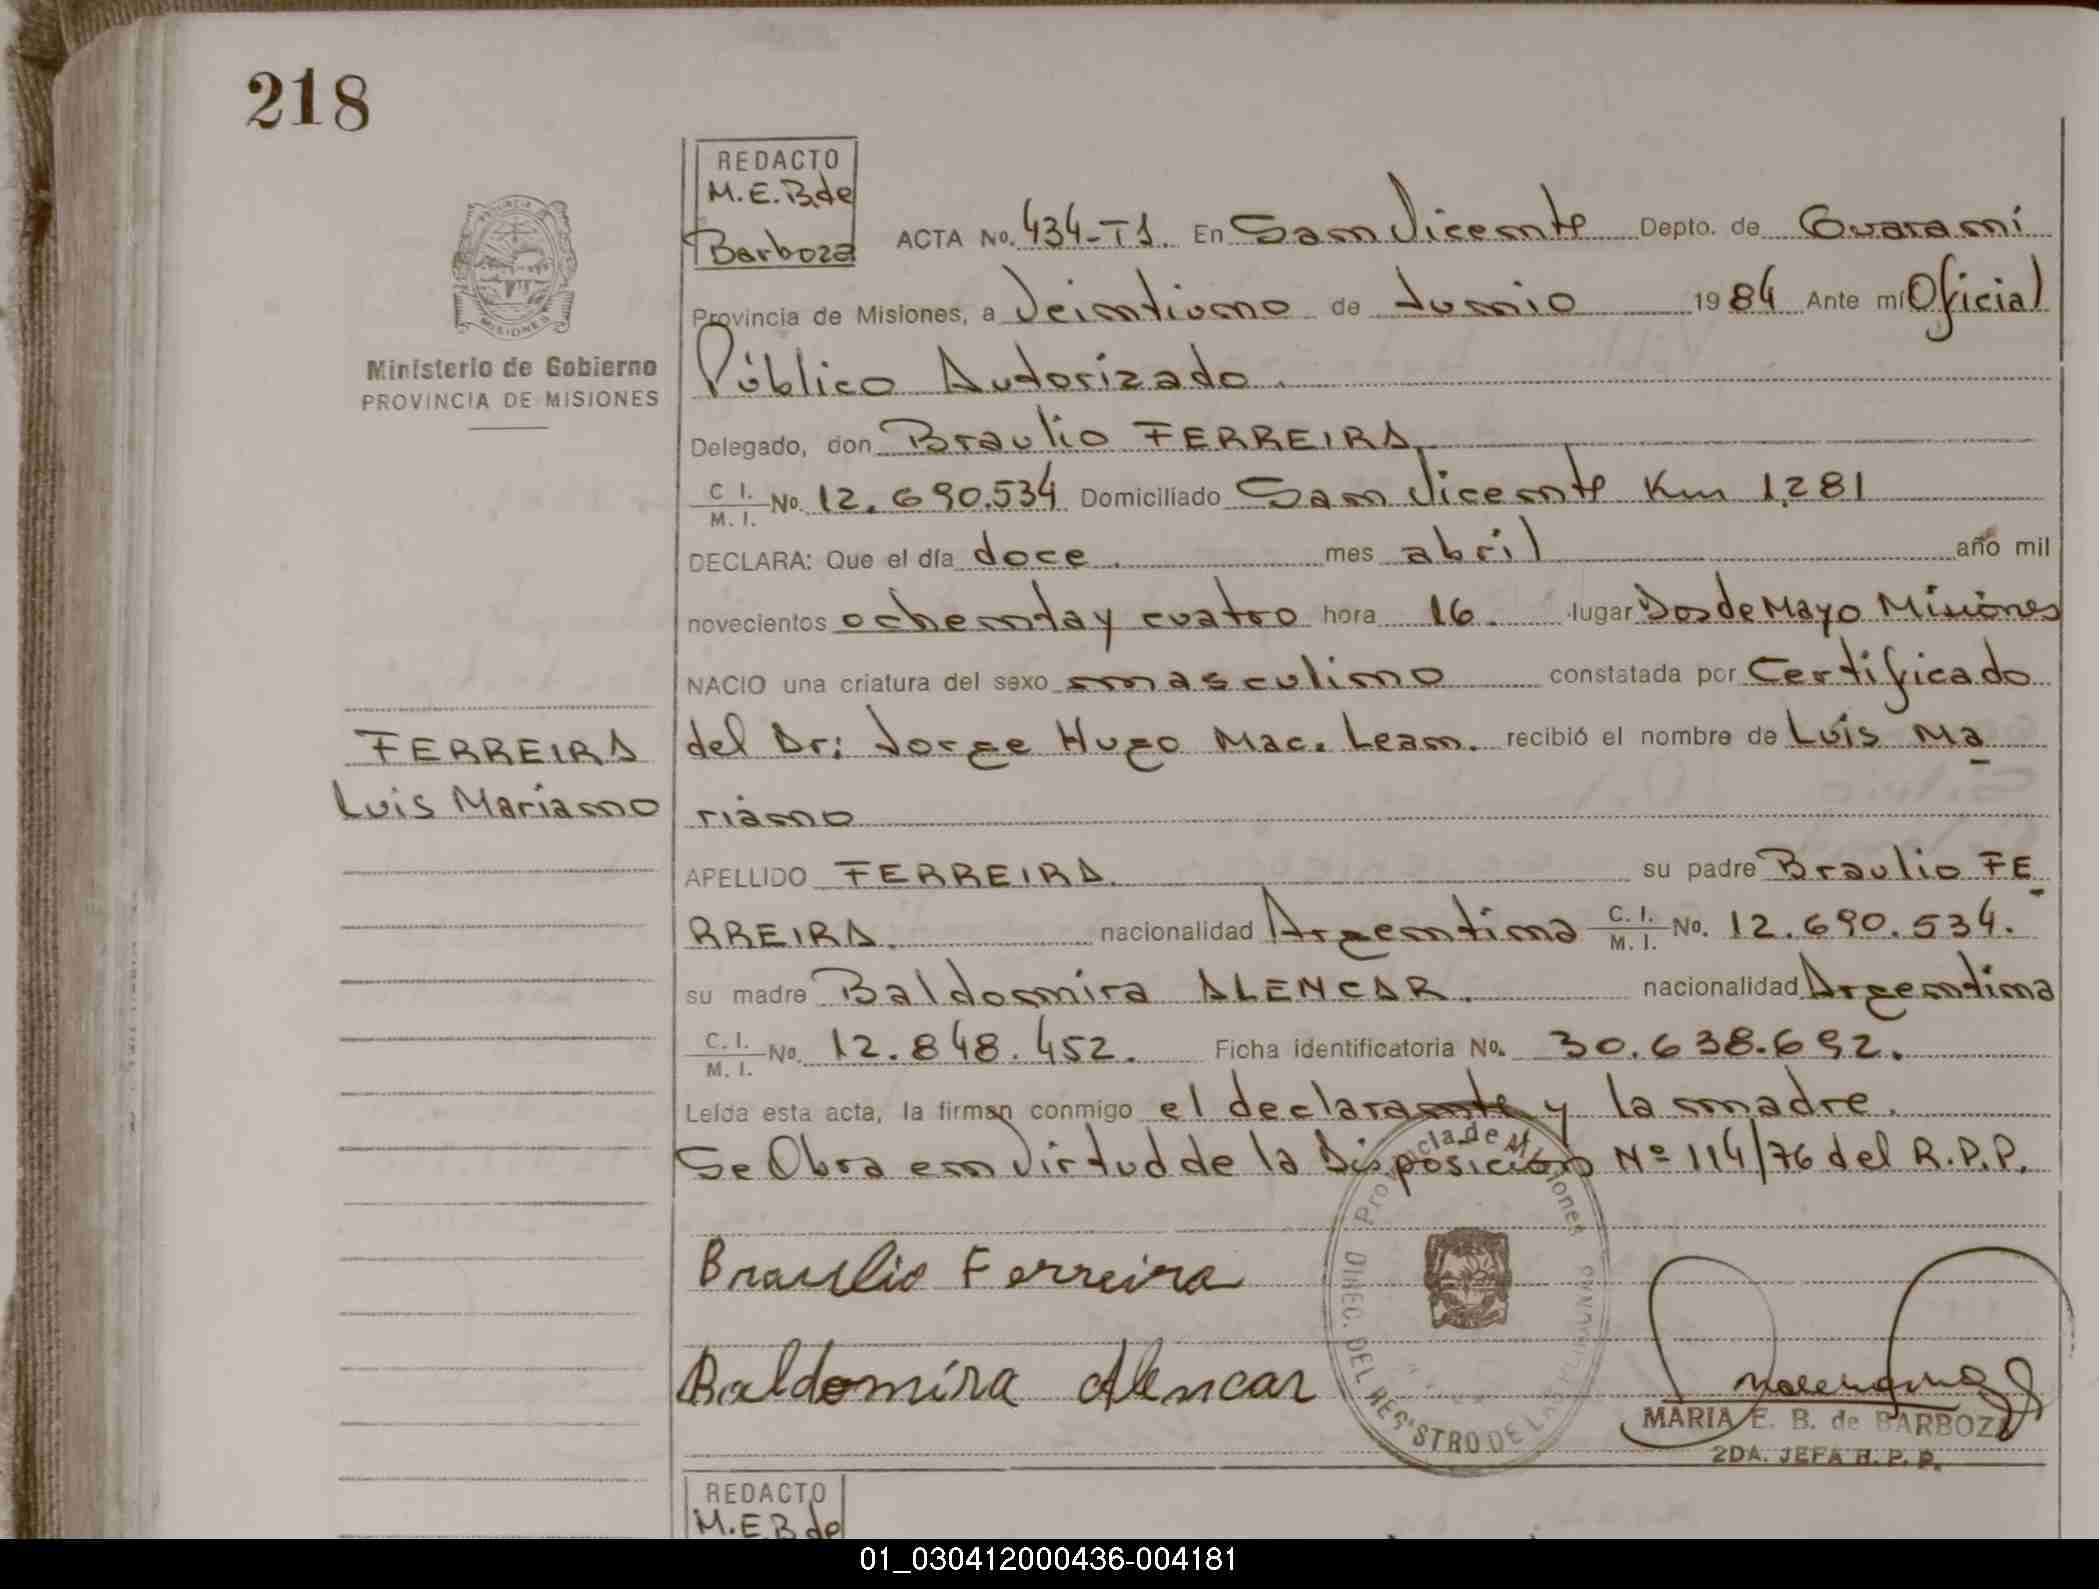 218
REDACTO
M.E.B. de
Barboza
ACTA No. 434-T1. En San Vicente Depto. de Guaraní
Provincia de Misiones, a Veintiuno de Junio 1984 Ante mí Oficial
Público Autorizado.
Delegado, don Braulio FERREIRA
C. I.
M. I. No. 12.690.534 Domiciliado San Vicente Km 1281
DECLARA: Que el día doce mes abril año mil
novecientos ochenta y cuatro hora 16. lugar Dos de Mayo Misiones
NACIO una criatura del sexo masculino constatada por Certificado
del Dr: Jorge Hugo Mac. Lean. recibió el nombre de Luis Ma
riano
APELLIDO FERREIRA su padre Braulio FE
RREIRA. nacionalidad Argentina C. I. M. I. No. 12.690.534.
su madre Baldomira ALENCAR. nacionalidad Argentina
C. I.
M. I. No. 12.848.452. Ficha identificatoria No. 30.638.692.
Leída esta acta, la firman conmigo el declarante y la madre.
Se Obra en Virtud de la Disposición Nº 114/76 del R.P.P.
Braulio Ferreira
Baldomira Alencar
MARIA E. B. de BARBOZA
2DA. JEFA R. P. P.
PROVINCIA DE
MISIONES
Ministerio de Gobierno
PROVINCIA DE MISIONES
FERREIRA
Luis Mariano
Provincia de Misiones
DIREC. DEL REGISTRO DE LAS
REDACTO
M.E.B de
01_030412000436-004181